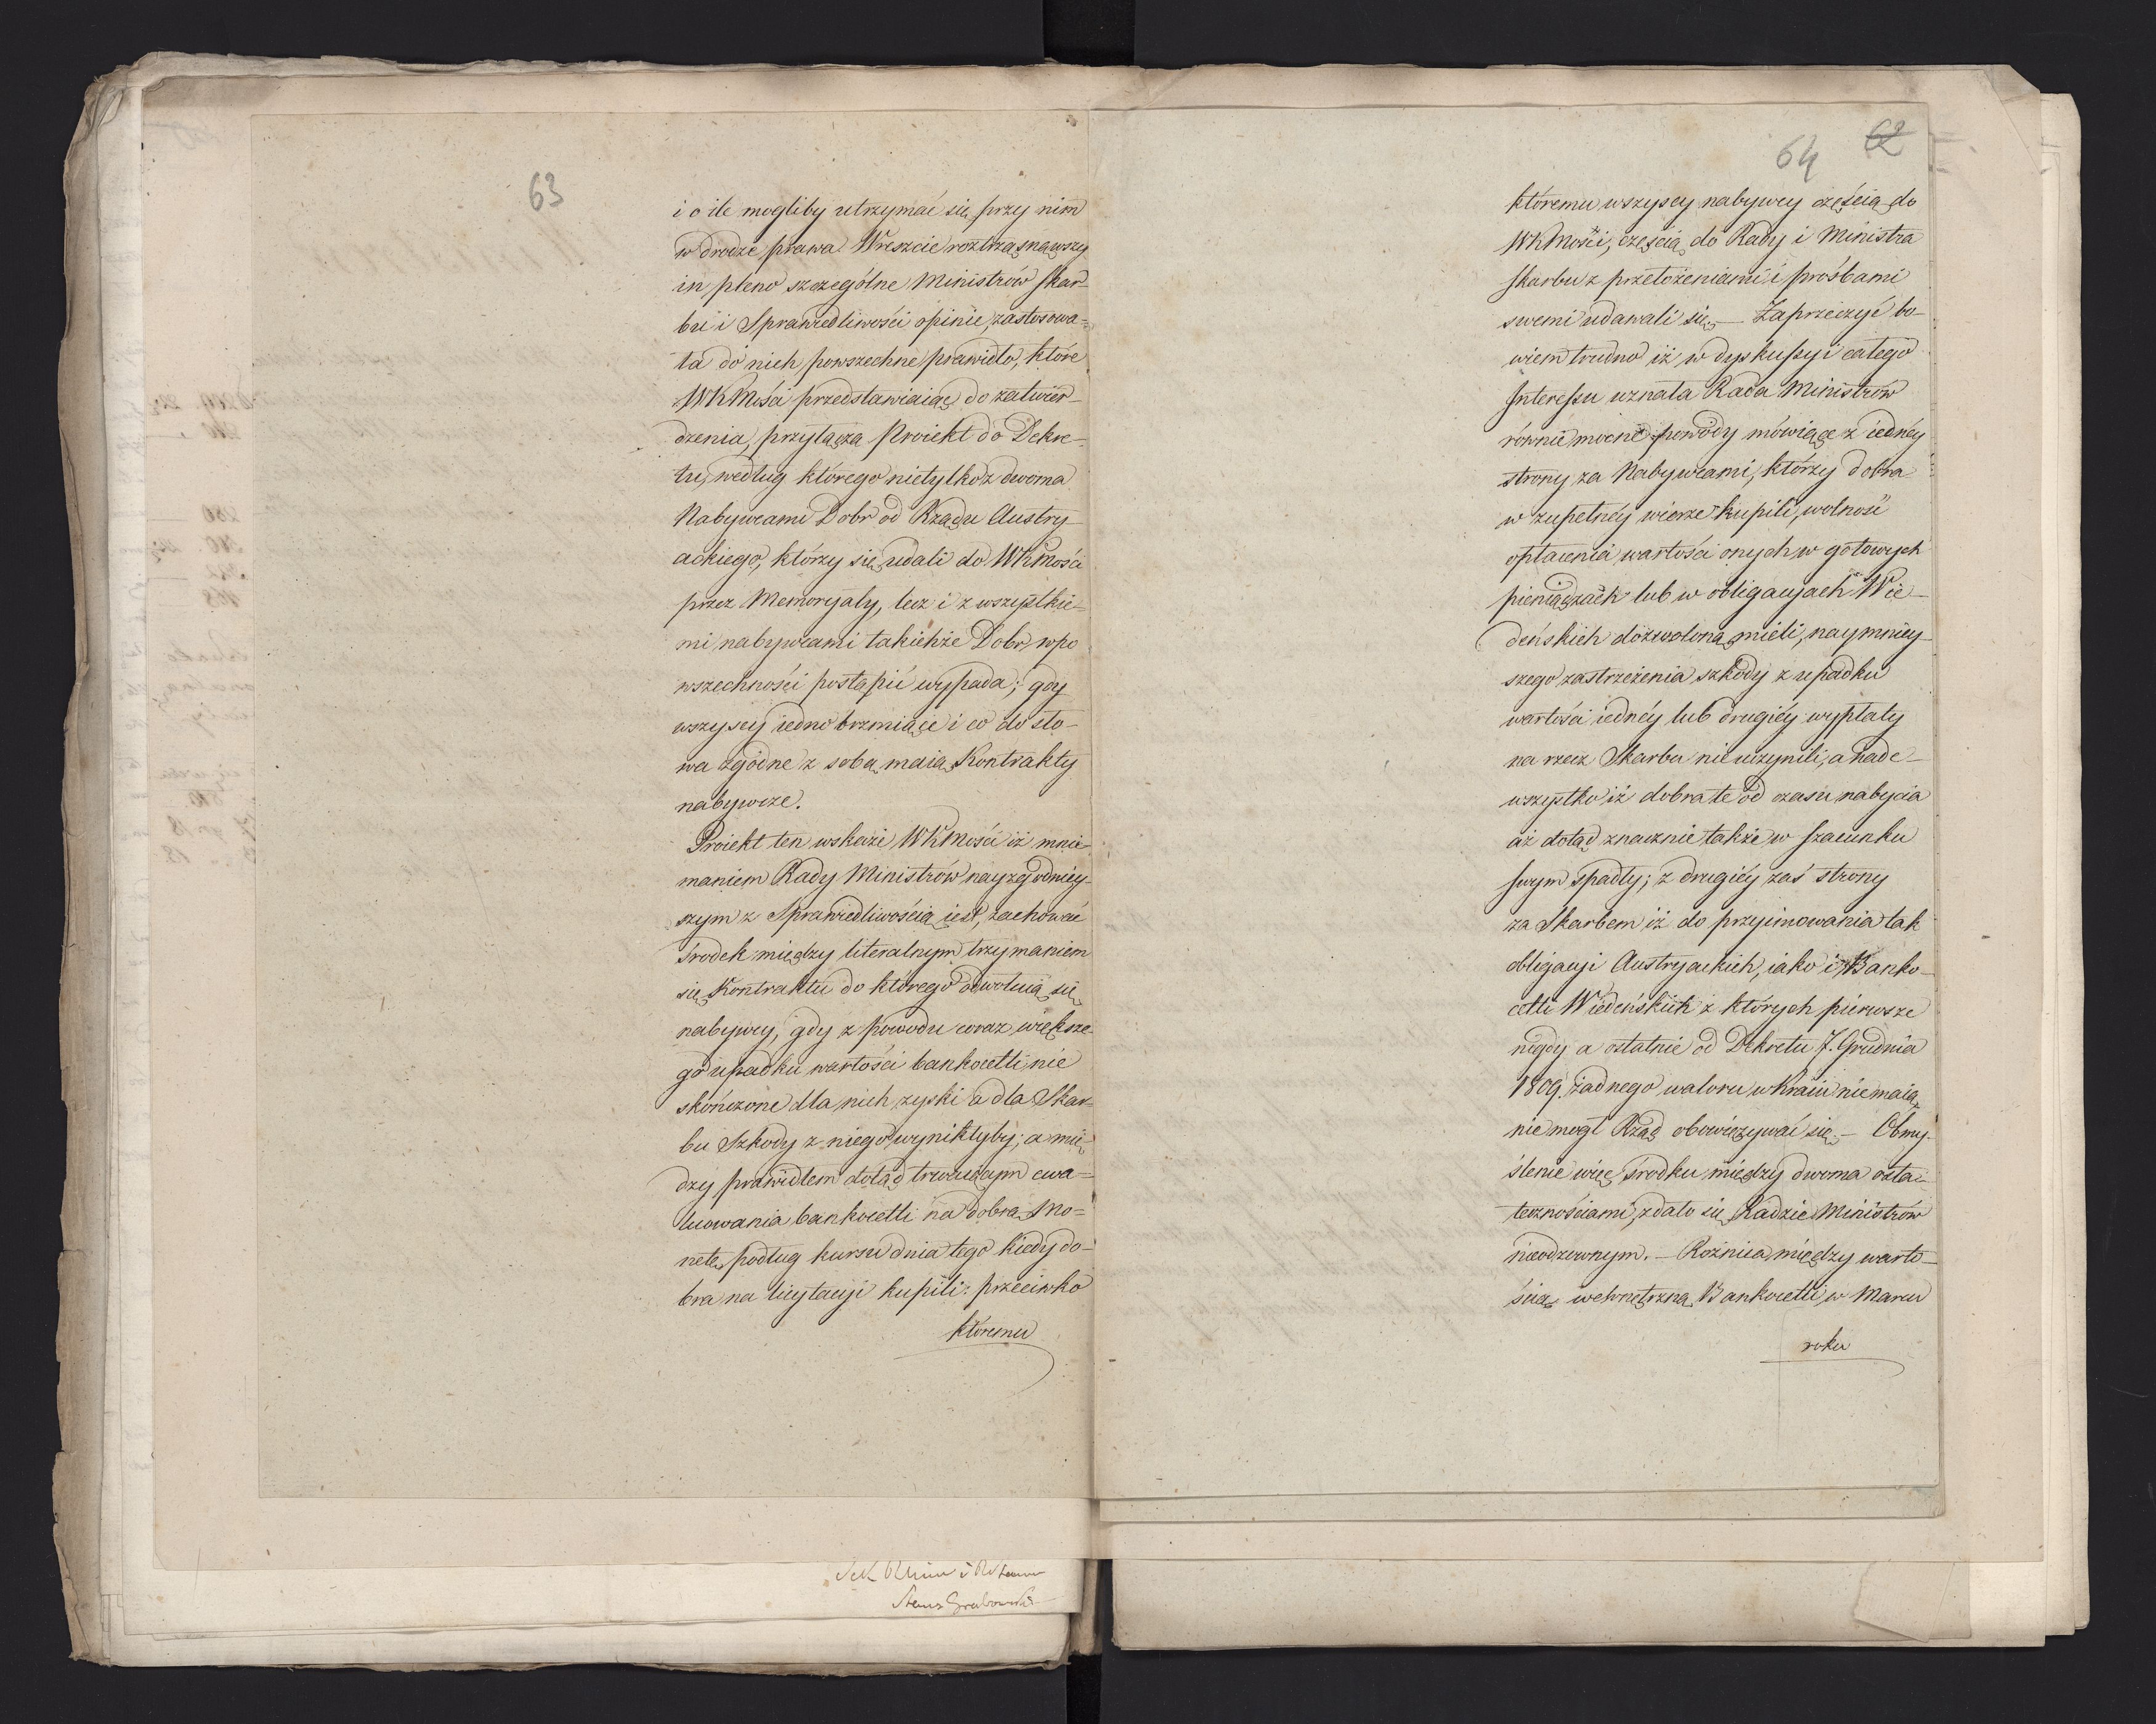 63
i o ile mogliby utrzymać się przy nim
w drodze prawa. Wreszcie roztrząsnąwszy
in pleno szczególne Ministrów Skar-
bu i Sprawiedliwości opinie, zastosowa-
ła do nich powszechne prawidło, które
WKMości przedstawiaiąc do zatwier-
dzenia, przyłącza Proiekt do Dekre-
tu, według którego nietylko z dwoma
Nabywcami Dobr od Rządu Austry-
ackiego, którzy się udali do WKMości
przez Memoryały, lecz i z wszystkie-
mi nabywcami takichże Dobr, w po
wszechności postąpić wypada; gdy
wszyscy iedno brzmiące i co do sło-
wa zgodne z sobą maią Kontrakty
nabywcze.
Proiekt ten wskaże WKMości iż mnie-
maniem Rady Ministrów nayzgodniey-
szym z Sprawiedliwością iest, zachować
środek między literalnym trzymaniem
się Kontraktu do którego odwołuią się
nabywcy, gdy z powodu coraz większe-
go upadku wartości bankocetli, nie
skończone dla nich zyski a dla Skar-
bu Szkody z niego wynikłyby; a mię-
dzy prawidłem dotąd trwaiącym ewa-
luowania bankocetli na dobrą mo-
netę, podług kursu dnia tego kiedy do-
bra na licytacyi kupili: przeciwko
któremu
Stanis Grabowski
64 62
któremu wszyscy nabywcy częścią do
WKMości, częścią do Rady i Ministra
Skarbu z przełożeniami i prośbami
swemi udawali się. — Zaprzeczyć bo-
wiem trudno iż w dyskussyi całego
Interessu uznała Rada Ministrów
równie mocne powody mówiące z iedney
strony za Nabywcami, którzy dobra
w zupełney wierze kupili, wolność
opłacenia wartości onych w gotowych
pieniądzach lub w obligacyach Wie-
deńskich dozwoloną mieli, naymniey-
szego zastrzeżenia szkody z upadku
wartości iedney lub drugiéy wypłaty
na rzecz Skarbu nie uczynili, a nade-
wszystko iż dobra te od czasu nabycia
aż dotąd znacznie także w szacunku
swym spadły; z drugiéy zaś strony
za Skarbem iż do przyimowania tak
obligacyi Austryackich, iako i Banko-
cetli Wiedeńskich z których pierwsze
nigdy a ostatnie od Dekretu 7. Grudnia
1809. żadnego waloru w Kraiu nie maią,
nie mogł Rząd obowiązywać się. — Obmy-
ślenie więc środku między dwoma osta-
tecznościami, zdało się Radzie Ministrów
nieodzownym. — Rożnica między warto-
ścią wewnętrzną Bankocetli w Marcu
roku